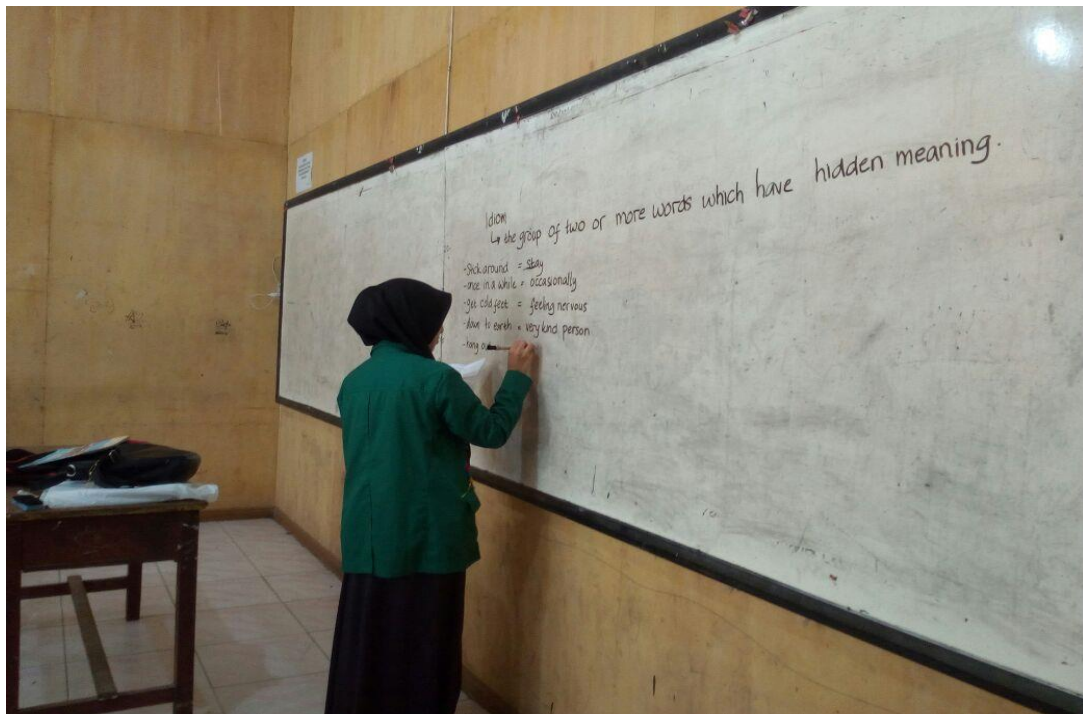 Idiom
↳ the group of two or more words which have hidden meaning.
-Stick around = stay
-once in a while = occasionally
-get cold feet = feeling nervous
-down to earth = very kind person
-hang